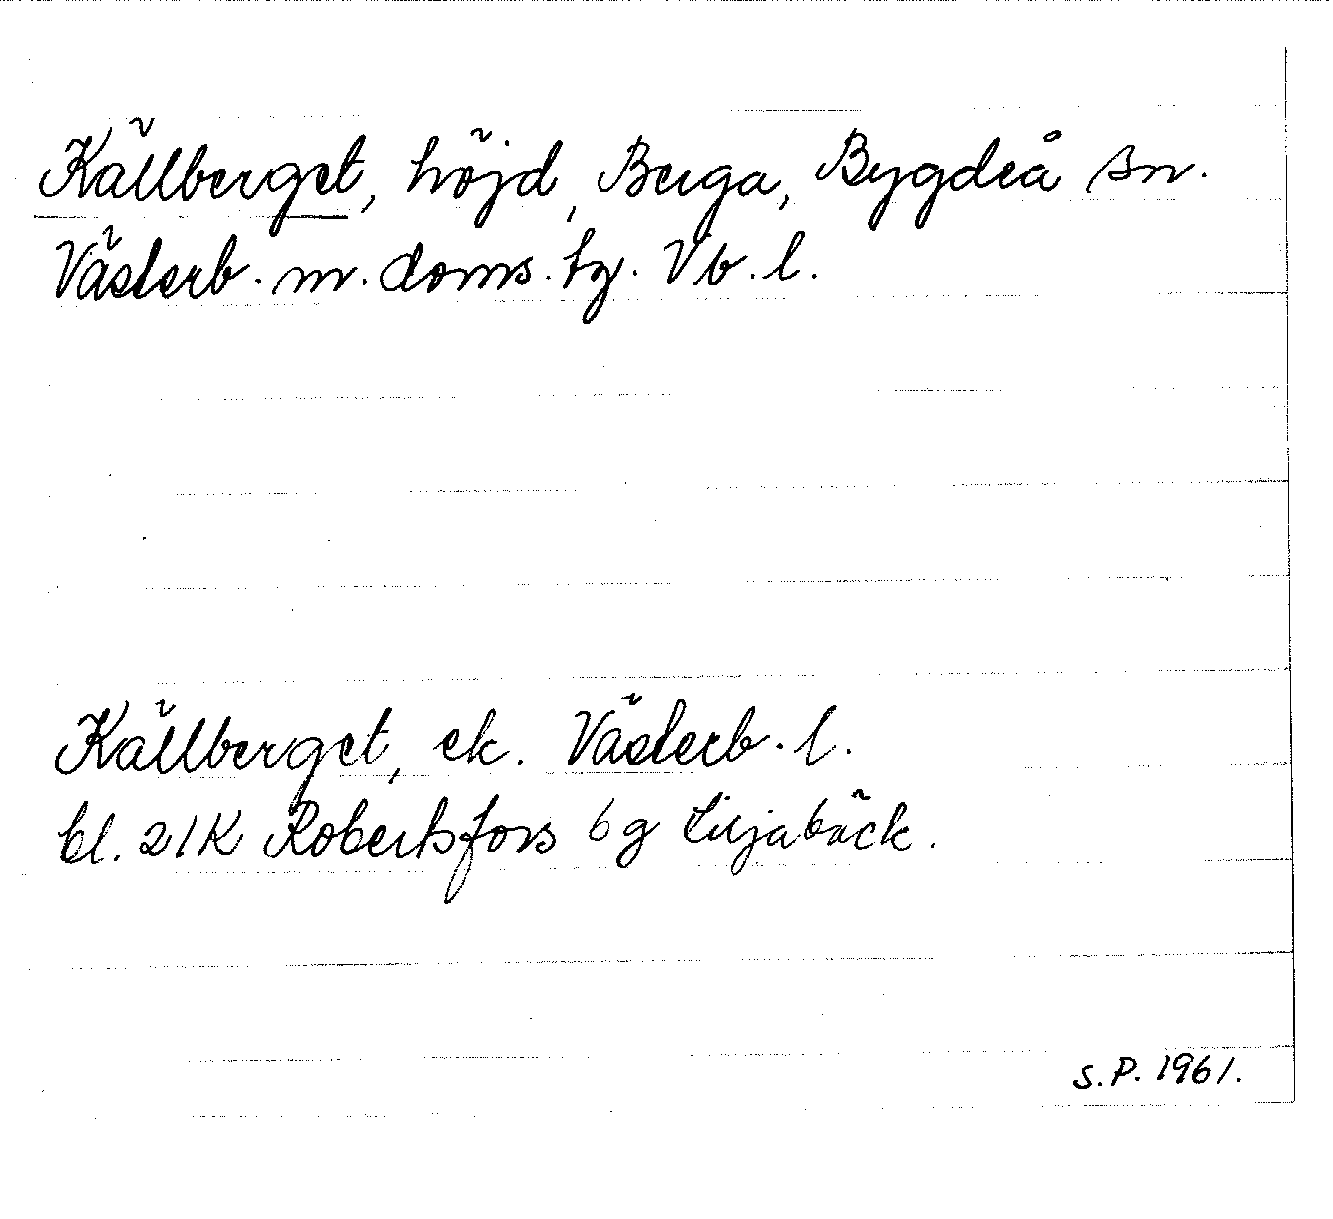 Källberget, höjd, Berga, Bygdeå sn.
Västerb. m. doms. tg. Vb. l.
Källberget, ek. Västerb. l.
bl. 21K Robertsfors 6g Liljabäck.
S.P. 1961.